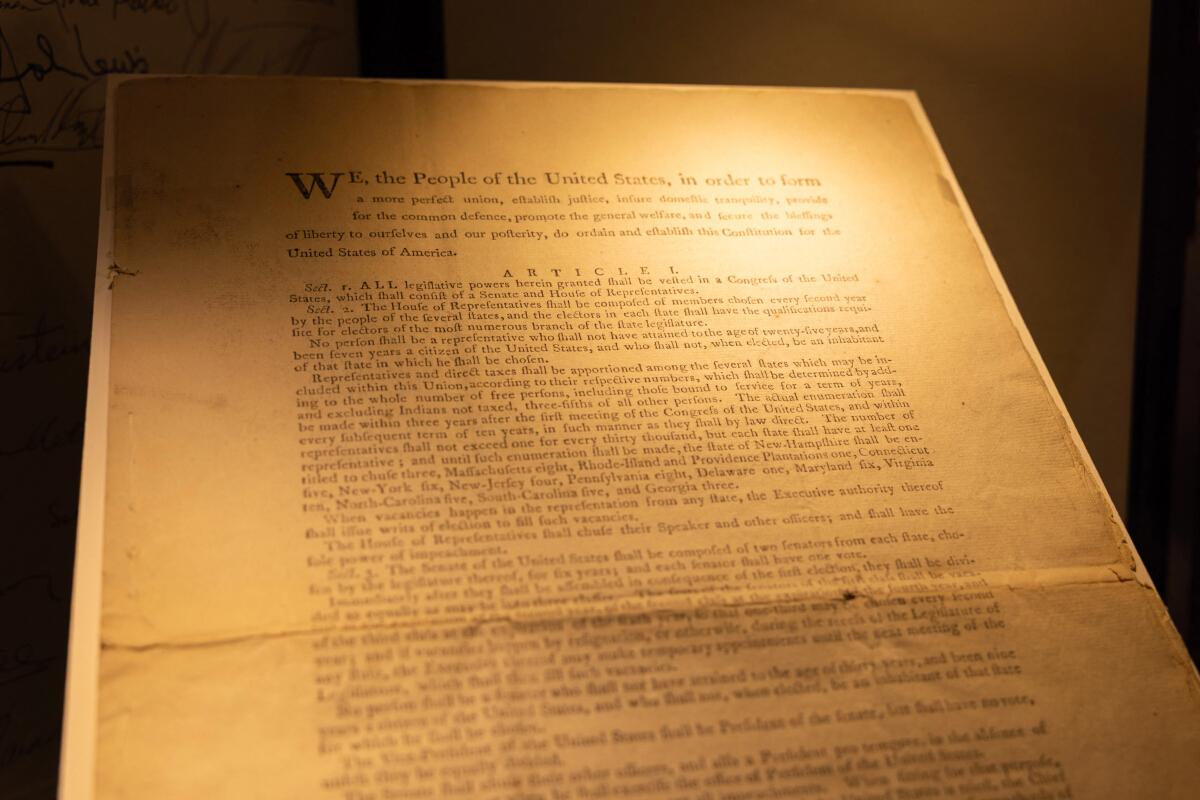 John Lewis
WE, the People of the United States, in order to form
a more perfect union, eſtabliſh juſtice, inſure domeſtic tranquility, provide
for the common defence, promote the general welfare, and ſecure the bleſſings
of liberty to ourſelves and our poſterity, do ordain and eſtabliſh this Conſtitution for the
United States of America.
ARTICLE I.
Sect. 1. ALL legiſlative powers herein granted ſhall be veſted in a Congreſs of the United
States, which ſhall conſiſt of a Senate and Houſe of Repreſentatives.
Sect. 2. The Houſe of Repreſentatives ſhall be compoſed of members choſen every ſecond year
by the people of the ſeveral ſtates, and the electors in each ſtate ſhall have the qualifications requi-
ſite for electors of the moſt numerous branch of the ſtate legiſlature.
No perſon ſhall be a repreſentative who ſhall not have attained to the age of twenty-five years, and
been ſeven years a citizen of the United States, and who ſhall not, when elected, be an inhabitant
of that ſtate in which he ſhall be choſen.
Repreſentatives and direct taxes ſhall be apportioned among the ſeveral ſtates which may be in-
cluded within this Union, according to their reſpective numbers, which ſhall be determined by add-
ing to the whole number of free perſons, including thoſe bound to ſervice for a term of years,
and excluding Indians not taxed, three-fifths of all other perſons. The actual enumeration ſhall
be made within three years after the firſt meeting of the Congreſs of the United States, and within
every ſubſequent term of ten years, in ſuch manner as they ſhall by law direct. The number of
repreſentatives ſhall not exceed one for every thirty thouſand, but each ſtate ſhall have at leaſt one
repreſentative; and until ſuch enumeration ſhall be made, the ſtate of New-Hampſhire ſhall be en-
titled to chuſe three, Maſſachuſetts eight, Rhode-Iſland and Providence Plantations one, Connecticut
five, New-York ſix, New-Jerſey four, Pennſylvania eight, Delaware one, Maryland ſix, Virginia
ten, North-Carolina five, South-Carolina five, and Georgia three.
When vacancies happen in the repreſentation from any ſtate, the Executive authority thereof
ſhall iſſue writs of election to fill ſuch vacancies.
The Houſe of Repreſentatives ſhall chuſe their Speaker and other officers; and ſhall have the
ſole power of impeachment.
Sect. 3. The Senate of the United States ſhall be compoſed of two ſenators from each ſtate, cho-
ſen by the legiſlature thereof, for ſix years; and each ſenator ſhall have one vote.
Immediately after they ſhall be aſſembled in conſequence of the firſt election, they ſhall be divi-
ded as equally as may be into three claſſes. The ſeats of the of the firſt claſs ſhall be vaca-
the fourth year, and
of the third claſs at the expiration of the ſixth year, ſo that one-third may be choſen every ſecond
year; and if vacancies happen by reſignation, or otherwiſe, during the receſs of the Legiſlature of
any ſtate, the Executive thereof may make temporary appointments until the next meeting of the
Legiſlature, which ſhall then fill ſuch vacancies.
No perſon ſhall be a ſenator who ſhall not have attained to the age of thirty years, and been nine
years a citizen of the United States, and who ſhall not, when elected, be an inhabitant of that ſtate
for which he ſhall be choſen.
The Vice-Preſident of the United States ſhall be Preſident of the ſenate, but ſhall have no vote,
unleſs they be equally divided.
The Senate ſhall chuſe their other officers, and alſo a Preſident pro tempore, in the abſence of
he ſhall exerciſe the office of Preſident of the United States.
all impeachments. When ſitting for that purpoſe,
United States is tried, the Chief